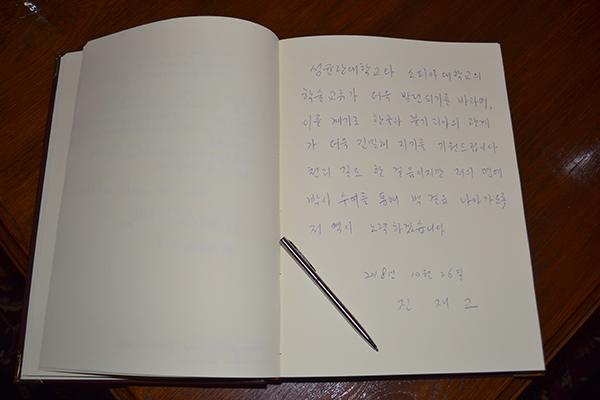 성균관대학교와 소피아대학교의
학술교류가 더욱 발전되기를 바라며,
이를 계기로 한국과 불가리아의 관계
가 더욱 긴밀해 지기를 기원드립니다
천리 길도 한 걸음이지만 저의 명예
박사 수여를 통해 백 걸음 나아가도록
저 역시 노력하겠습니다
2018년 10월 26일